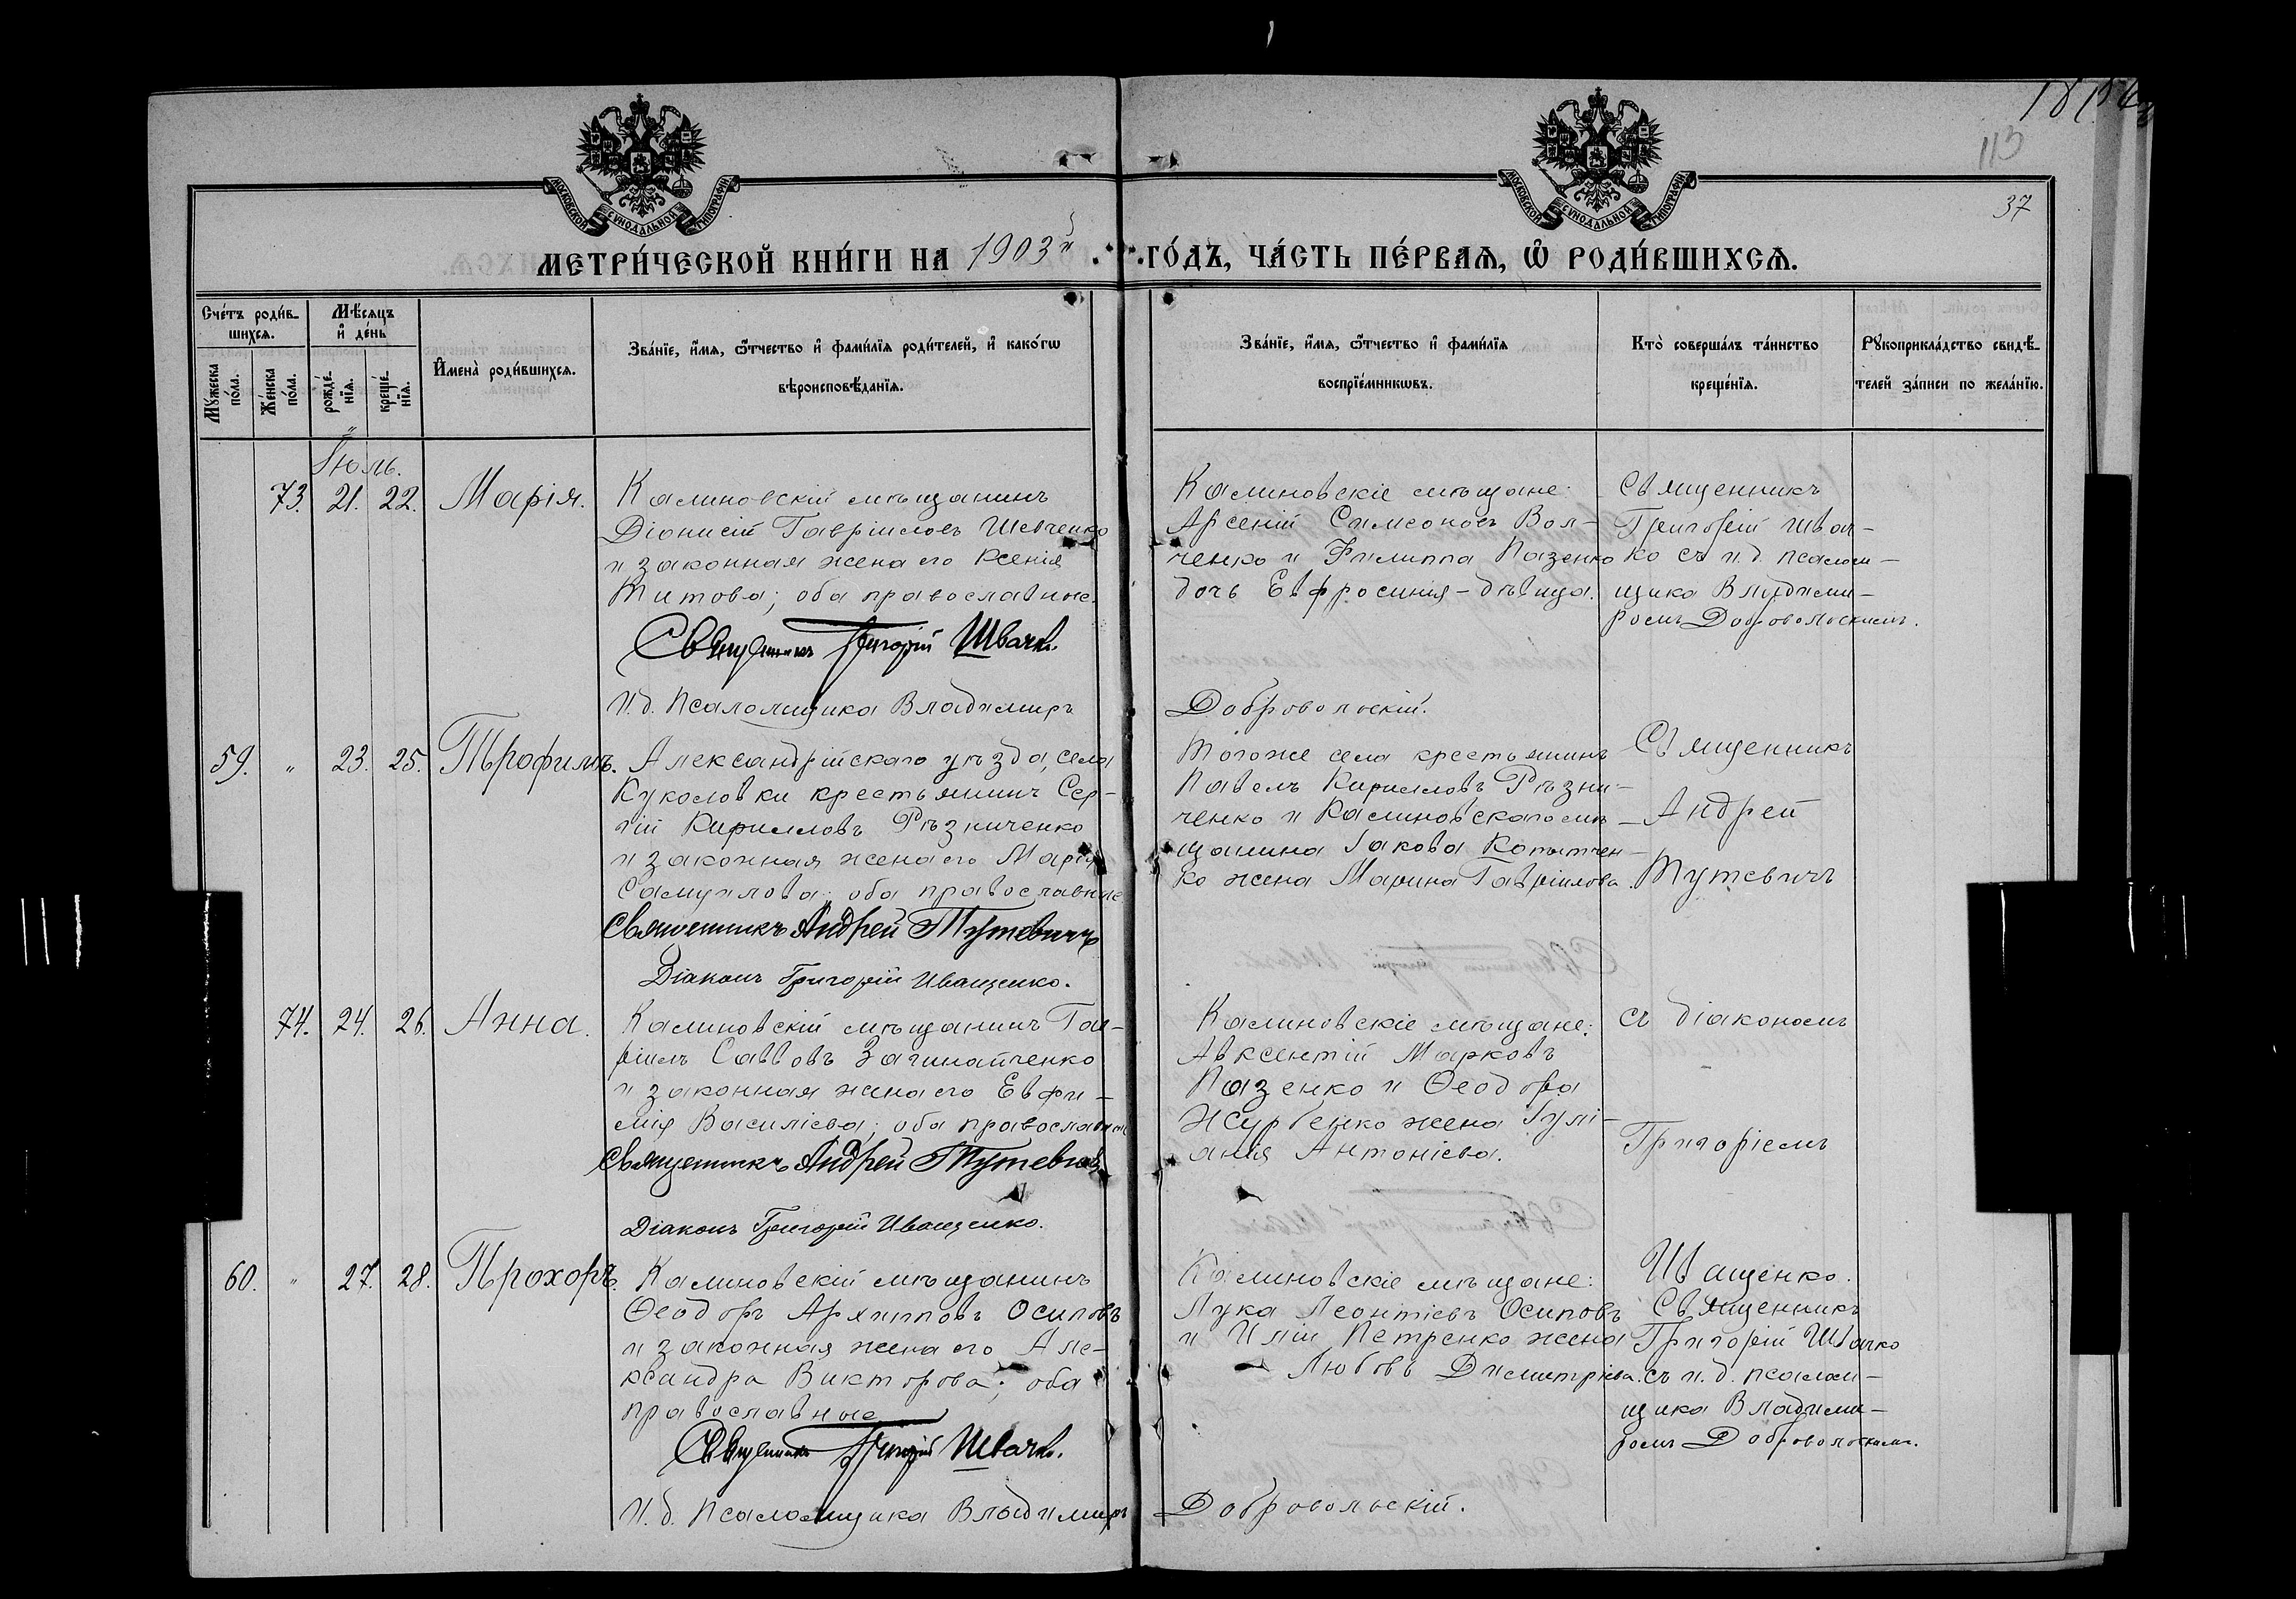 113
37
МОСКОВСКОЙ СѴНОДАЛЬНОЙ ТИПОГРАФІИ
МОСКОВСКОЙ СѴНОДАЛЬНОЙ ТИПОГРАФІИ
МЕТРИ́ЧЕСКОЙ КНИ́ГИ НА 1903й ГО́ДЪ, ЧА́СТЬ ПЕ́РВАѦ, Ѽ РОДИ́ВШИХСѦ.
Сче́тъ роди́в-
шихсѧ.
Мꙋжеска по́ла.
Же́нска по́ла.
Мѣ́сѧцъ
и҆ де́нь
рожде́-
нїѧ.
креще́-
нїѧ.
И҆мена̀ роди́вшихсѧ.
Зва́нїе, и҆́мѧ, ѻ҆́тчество и҆ фами́лїѧ роди́телей, и҆ како́гѡ
вѣроисповѣ́данїѧ.
Зва́нїе, и҆́мѧ, ѻ҆́тчество и҆ фами́лїѧ
воспрїе́мникѡвъ.
Кто̀ соверша́лъ та́инство
креще́нїѧ.
Рꙋкоприкла́дство свидѣ́-
телей за́писи по жела́нїю.
Іюль.
73. 21. 22. Марія.
Калиновскій мѣщанинъ
Діонисій Гавріиловъ Шевченко
и законная жена его Ксенія
Титова; оба православные.
Священникъ Григорій Швачко.
И.д. Псаломщика Владимиръ Добровольскій.
Калиновскіе мѣщане:
Арсеній Симеоновъ Вол-
ченко и Филиппа Пазенко
дочь Евфросинія - дѣвица.
Священникъ
Григорій Швач-
ко съ и.д. псалом-
щика Владими-
ромъ Добровольскимъ.
59. " 23. 25. Трофимъ.
Александрійскаго уѣзда, села
Куколовки крестьянинъ Сер-
гій Кирилловъ Рѣзниченко
и законная жена его Марія
Самуилова; оба православные
Священникъ Андрей Тутевичъ
Діаконъ Григорій Иващенко.
Тогоже села крестьянинъ
Павелъ Кирилловъ Рѣзни-
ченко и Калиновскаго мѣ-
щанина Іакова Копытчен-
ко жена Марина Гавріилова.
Священникъ
Андрей
Тутевичъ
74. 24. 26. Анна.
Калиновскій мѣщанинъ Гав-
ріилъ Савовъ Загинайченко
и законная жена его Евфи-
мія Василіева; оба православные
Священникъ Андрей Тутевичъ
Діаконъ Григорій Иващенко.
Калиновскіе мѣщане:
Авксентій Марковъ
Пазенко и Ѳеодора
Журбенко жена Іулі-
анія Антоніева.
съ діакономъ
Григоріемъ
Иващенко.
60. " 27. 28. Прохоръ.
Калиновскій мѣщанинъ
Ѳеодоръ Архиповъ Осиповъ
и законная жена его Але-
ксандра Викторова; оба
православные
Священникъ Григорій Швачко.
И.д. Псаломщика Владимиръ Добровольскій.
Калиновскіе мѣщане:
Лука Леонтіевъ Осиповъ
и Иліи Петренко жена
Любовь Димитріева.
Священникъ
Григорій Швачко
съ и.д. псалом-
щика Владими-
ромъ Добровольскимъ.